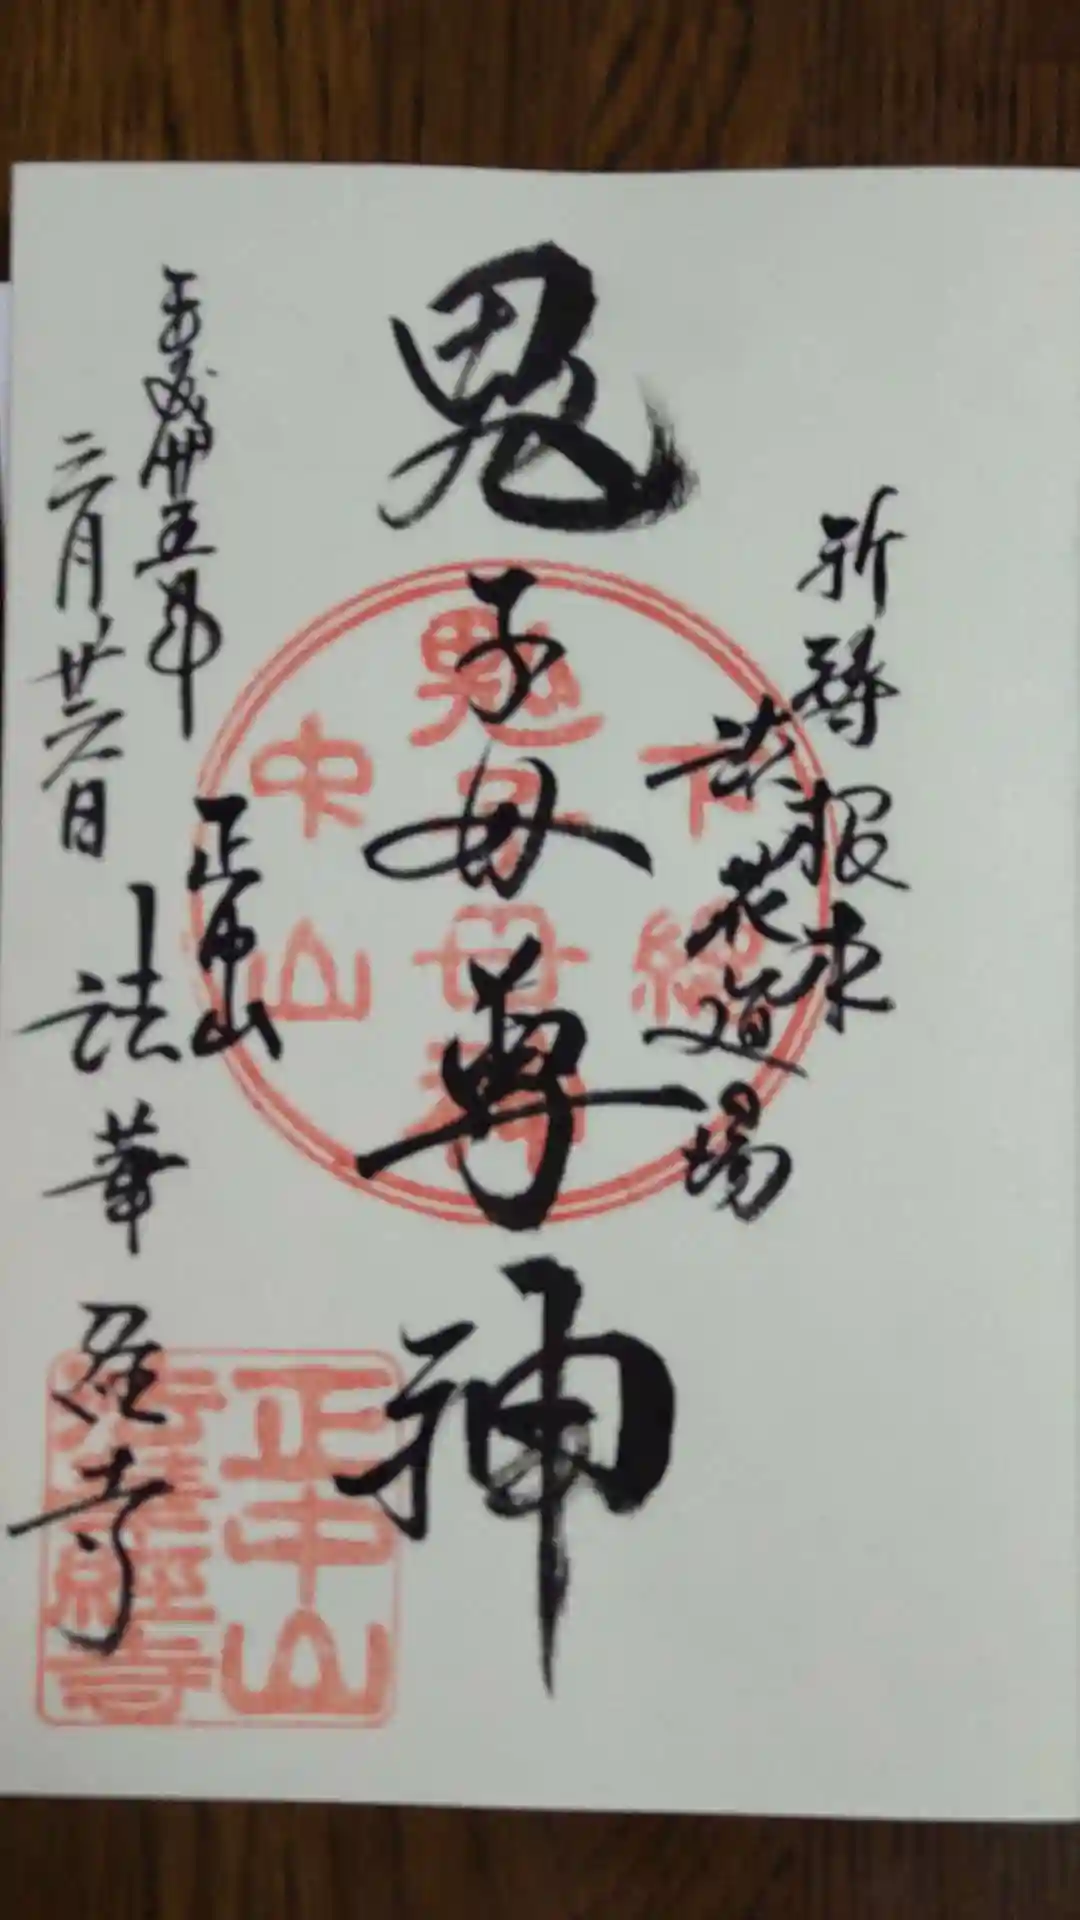 祈祷根本
法花道場
鬼子母尊神
平成廿五年
三月廿六日
正中山
法華経寺
中山
鬼子母尊神
正中山
法華經寺